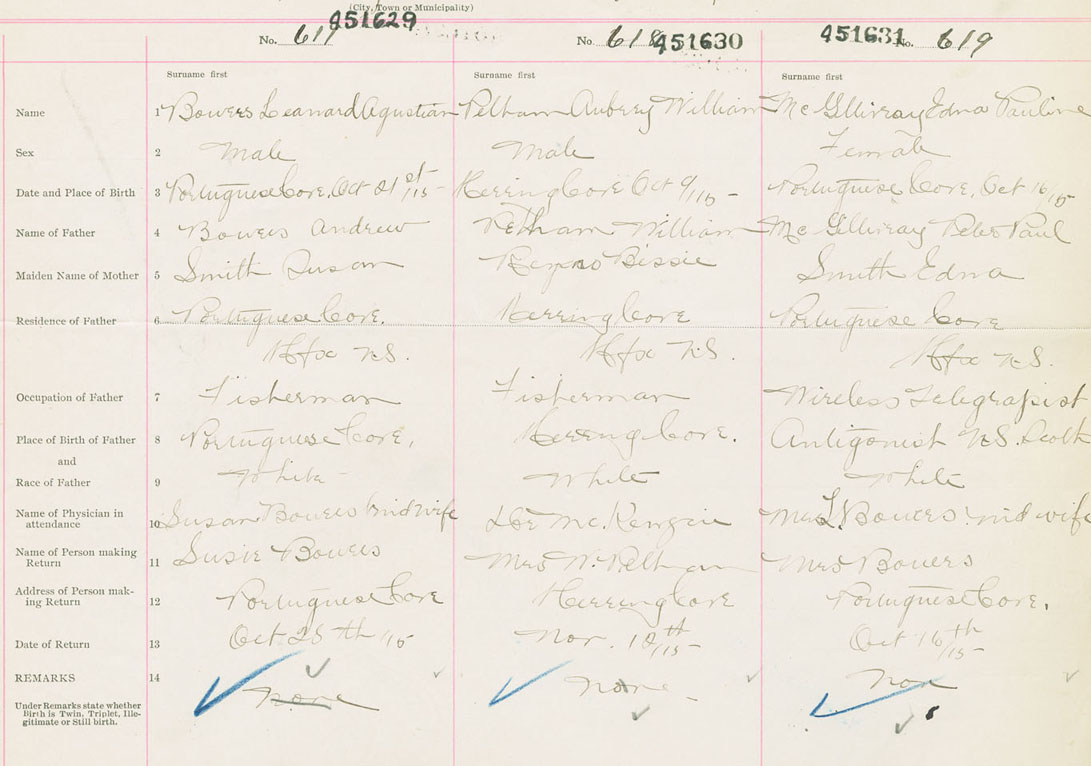 (City, Town or Municipality)
No. 617 451629 No. 618 451630 451631 No. 619
Surname first Surname first Surname first
Name 1 Bowers Leanard Agustian Pelham Aubrey William McGillivray Edna Pauline
Sex 2 Male Male Female
Date and Place of Birth 3 Portuguese Cove, Oct 21st/15 - Herring Cove Oct 9/15 - Portuguese Cove, Oct 16/15
Name of Father 4 Bowers Andrew Pelham William McGillivray Peter Paul
Maiden Name of Mother 5 Smith Susan Reyno Bissie Smith Edna
Residence of Father 6 Portuguese Cove. Herring Cove Portuguese Cove
Hfx N.S. Hfx N.S. Hfx N.S.
Occupation of Father 7 Fisherman Fisherman Wireless Telegrapist
Place of Birth of Father 8 Portuguese Cove, Herring Cove. Antigonish N.S.
and
Race of Father 9 White White White
Name of Physician in attendance 10 Susan Bowers midwife Dr McKenzie Mrs Bowers midwife
Name of Person making Return 11 Susie Bowers Mrs W. Pelham Mrs Bowers
Address of Person making Return 12 Portuguese Cove Herring Cove Portuguese Cove.
Date of Return 13 Oct 25th/15 Nov. 18th/15 Oct 16th/15
REMARKS 14 None None Non
Under Remarks state whether
Birth is Twin, Triplet, Ille-
gitimate or Still birth.